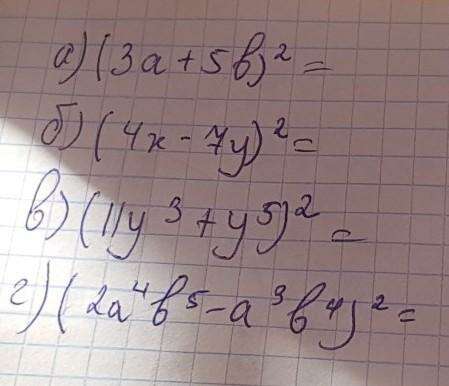 а) (3a + 5b)² =
б) (4x - 7y)² =
в) (11y³ + y⁵)² =
г) (2a⁴b⁵ - a³b⁴)² =